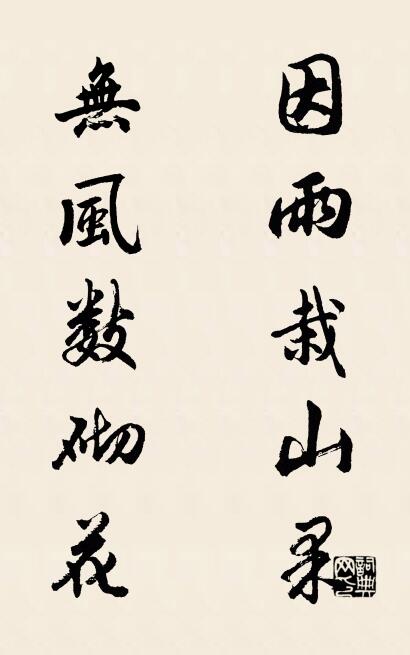 因雨栽山果
無風数砌花
詞典网